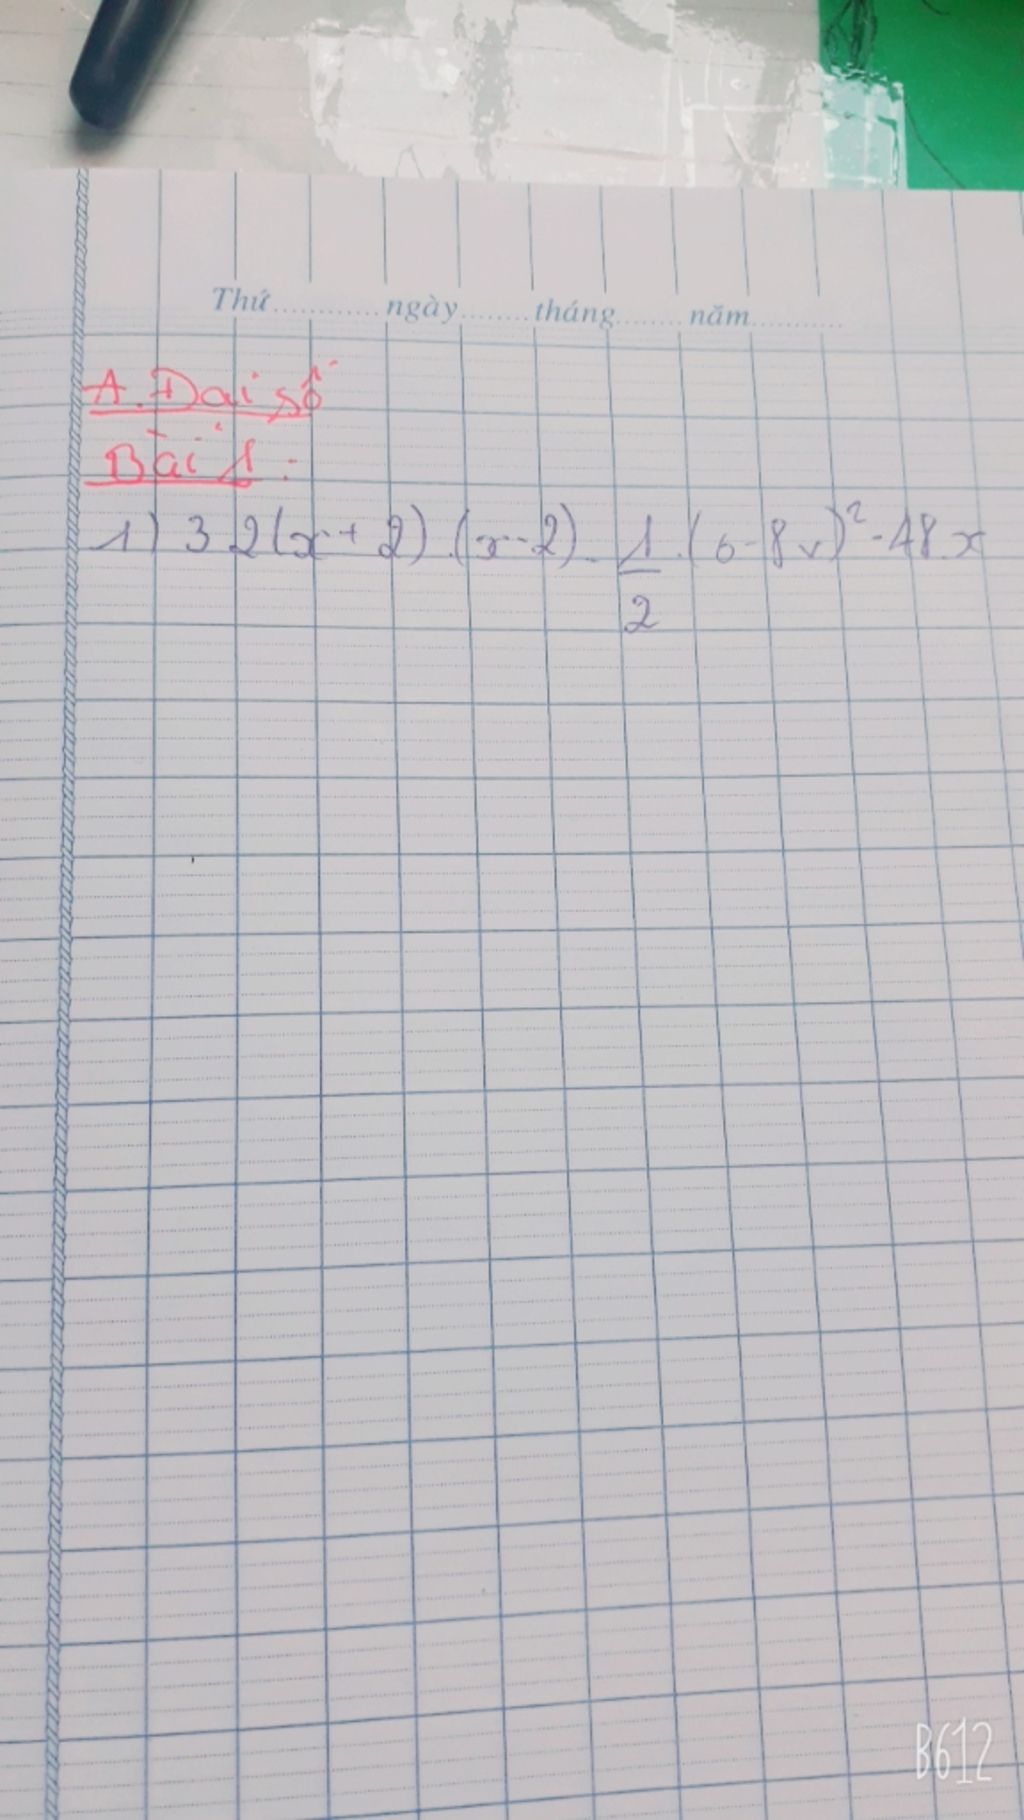 Thứ............ ngày........ tháng........ năm...........
A. Đại số
Bài 1:
1) 32(x+2).(x-2)-1/2.(6-8x)²-48x
B612